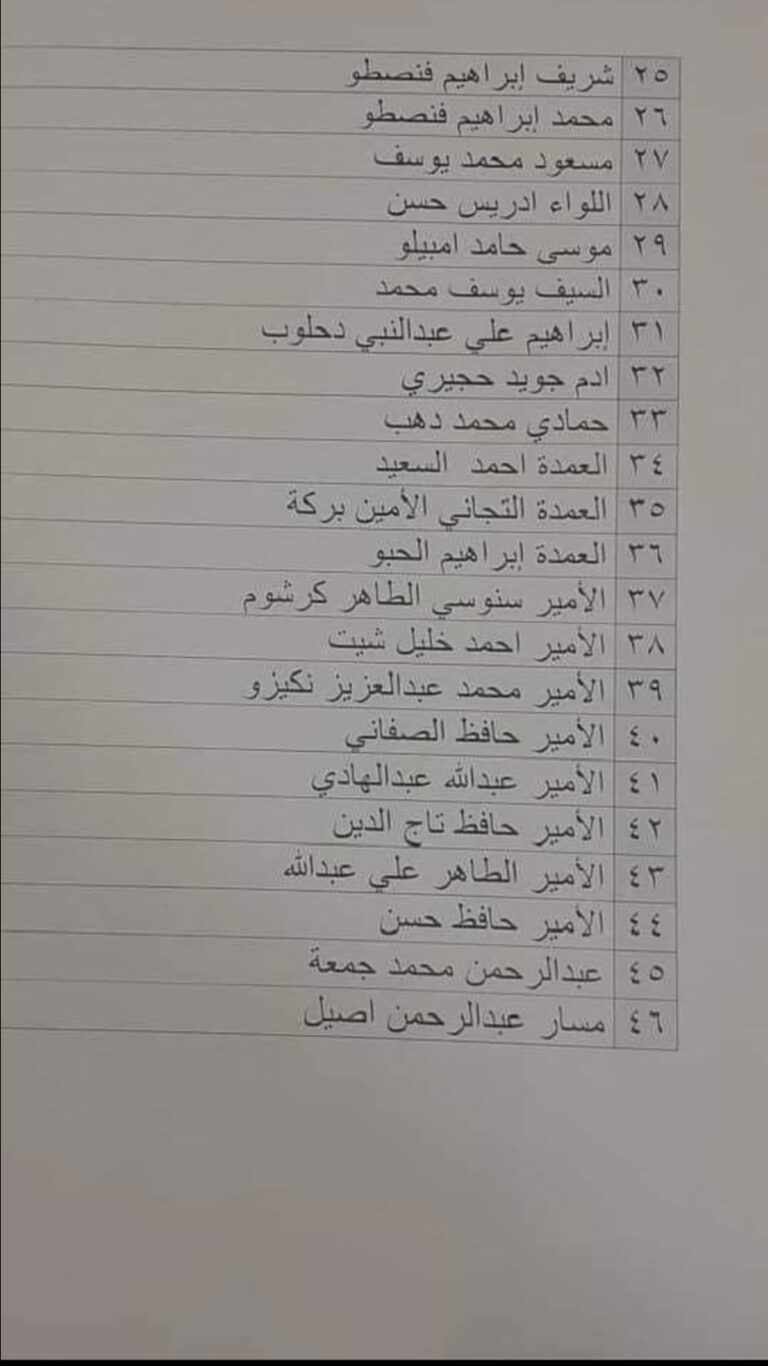 ٢٥ شريف إبراهيم فنصطو
٢٦ محمد إبراهيم فنصطو
٢٧ مسعود محمد يوسف
٢٨ اللواء ادريس حسن
٢٩ موسى حامد امبيلو
٣٠ السيف يوسف محمد
٣١ إبراهيم علي عبدالنبي دحلوب
٣٢ ادم جويد حجيري
٣٣ حمادي محمد دهب
٣٤ العمدة احمد السعيد
٣٥ العمدة التجاني الأمين بركة
٣٦ العمدة إبراهيم الحبو
٣٧ الأمير سنوسي الطاهر كرشوم
٣٨ الأمير احمد خليل شيت
٣٩ الأمير محمد عبدالعزيز نكيزو
٤٠ الأمير حافظ الصفاني
٤١ الأمير عبدالله عبدالهادي
٤٢ الأمير حافظ تاج الدين
٤٣ الأمير الطاهر علي عبدالله
٤٤ الأمير حافظ حسن
٤٥ عبدالرحمن محمد جمعة
٤٦ مسار عبدالرحمن اصيل